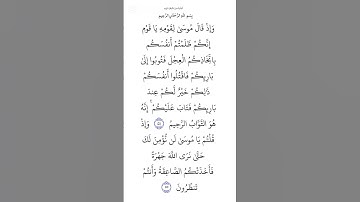 بِسْمِ اللَّهِ الرَّحْمَٰنِ الرَّحِيمِ
وَإِذْ قَالَ مُوسَىٰ لِقَوْمِهِ يَا قَوْمِ
إِنَّكُمْ ظَلَمْتُمْ أَنْفُسَكُم
بِاتِّخَاذِكُمُ الْعِجْلَ فَتُوبُوا إِلَىٰ
بَارِئِكُمْ فَاقْتُلُوا أَنْفُسَكُمْ
ذَٰلِكُمْ خَيْرٌ لَّكُمْ عِندَ
بَارِئِكُمْ فَتَابَ عَلَيْكُمْ ۚ إِنَّهُ
هُوَ التَّوَّابُ الرَّحِيمُ ﴿٥٤﴾ وَإِذْ
قُلْتُمْ يَا مُوسَىٰ لَن نُّؤْمِنَ لَكَ
حَتَّىٰ نَرَى اللَّهَ جَهْرَةً
فَأَخَذَتْكُمُ الصَّاعِقَةُ وَأَنتُمْ
تَنظُرُونَ ﴿٥٥﴾